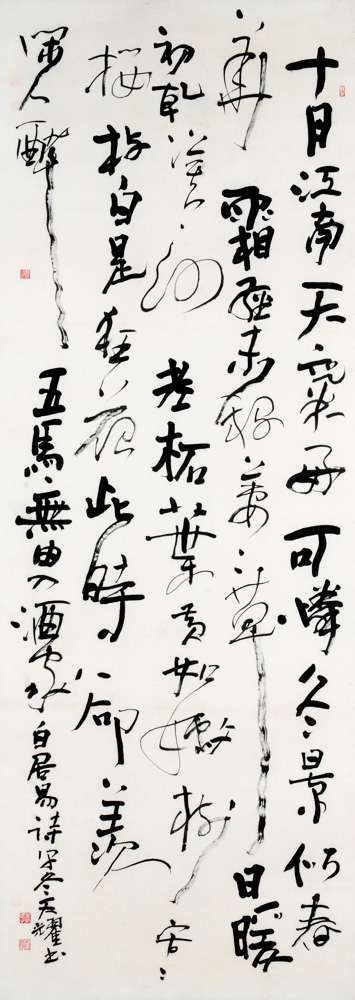 十月江南天氣好可憐冬景似春
華霜輕未殺萋〻草日暖
初乾漠〻沙老柘葉黄如嫩樹寒
櫻枝白是狂花此時卻羨
閑人醉五馬無由入酒家白居易詩早冬耀书